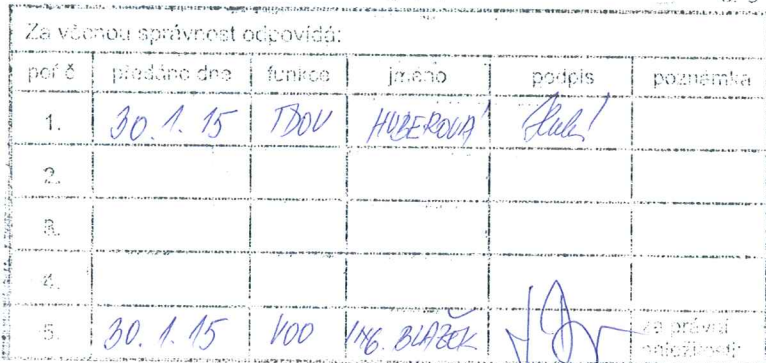 Za věcnou správnost odpovídá:
poř.č předáno dne funkce jméno podpis poznámka
1. 30. 1. 15 HUBEROVÁ
2.
3.
4.
5. 30. 1. 15 VOO ING. BLAŽEK za právní
náležitosti